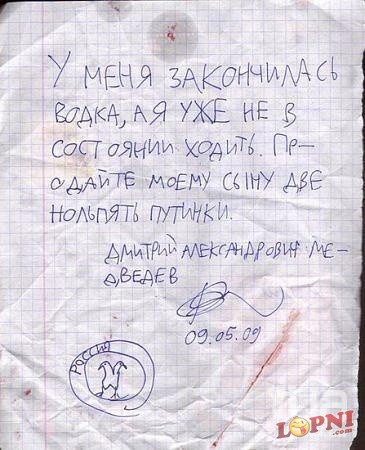 У МЕНЯ ЗАКОНЧИЛАСЬ
ВОДКА, А Я УЖЕ НЕ В
СОСТОЯНИИ ХОДИТЬ. ПР-
ОДАЙТЕ МОЕМУ СЫНУ ДВЕ
НОЛЬПЯТЬ ПУТИНКИ.
ДМИТРИЙ АЛЕКСАНДРОВИЧ МЕ-
ДВЕДЕВ
09.05.09
РОССИЯ
LOPNI
.com